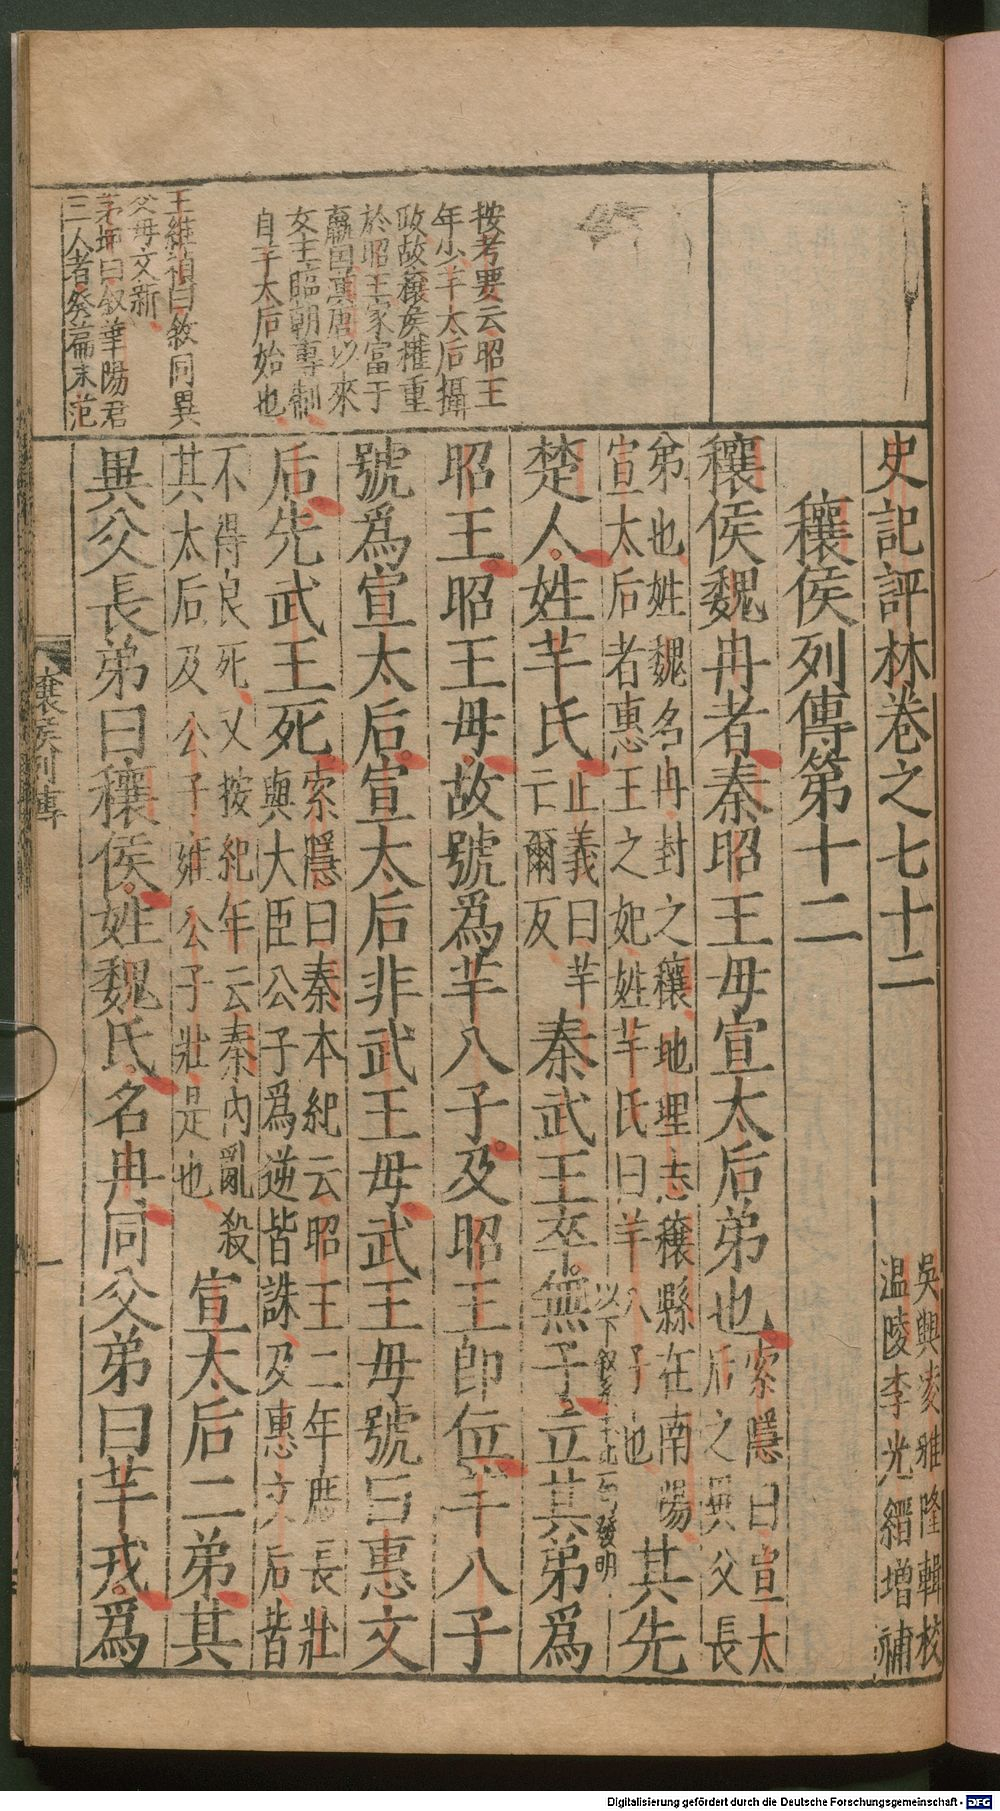 史記評林卷之七十二
吳興凌稚隆輯校
温陵李光縉增補
穰侯列傳第十二
穰侯魏冉者秦昭王母宣太后弟也
索隱曰宣太
后之異父長
弟也姓魏名冉封之穰地理志穰縣在南陽
宣太后者惠王之妃姓羋氏曰羋八子也
其先
楚人姓羋氏
正義曰羋
亡爾反
秦武王卒無子
立其弟爲
昭王昭王母故號爲羋八子及昭王卽位羋八子
號爲宣太后宣太后非武王母武王母號曰惠文
后先武王死
索隱曰秦本紀云昭王二年庶長壯
與大臣公子爲逆皆誅及惠文后皆
不得良死又按紀年云秦內亂殺
其太后及公子雍公子壯是也
宣太后二弟其
異父長弟曰穰侯姓魏氏名冉同父弟曰羋戎爲
按考要云昭王
年少羋太后攝
政故穰侯權重
於昭王家富于
嬴国莫唐以來
女主臨朝專制
自羋太后始也
王維禎曰敘同異
父母文新
茅坤曰叙華陽君
三人者發篇末范
穰侯列傳
一